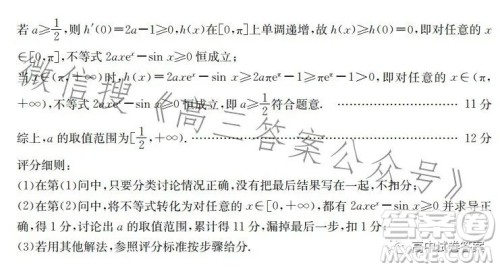 若a≥1/2,则h′(0)=2a−1≥0,h(x)在[0,π]上单调递增,故h(x)≥h(0)=0,即对任意的x
∈[0,π],不等式2axeˣ−sin x≥0恒成立;
当x∈(π,+∞)时,h(x)=2axeˣ−sin x≥2aπeˣ−1≥πeˣ−1>0,即对任意的x∈(π,
+∞),不等式2axeˣ−sin x≥0恒成立,即a≥1/2符合题意. …… 11分
综上,a的取值范围为[1/2,+∞). …… 12分
评分细则:
(1)在第(1)问中,只要分类讨论情况正确,没有把最后结果写在一起,不扣分;
(2)在第(2)问中,将不等式转化为对任意的x∈[0,+∞),都有2axeˣ−sin x≥0并求导正
确,得1分,讨论出a的取值范围,累计得11分,漏掉最后一步,扣1分;
(3)若用其他解法,参照评分标准按步骤给分.
微信搜《高三答案公众号》
答案圈